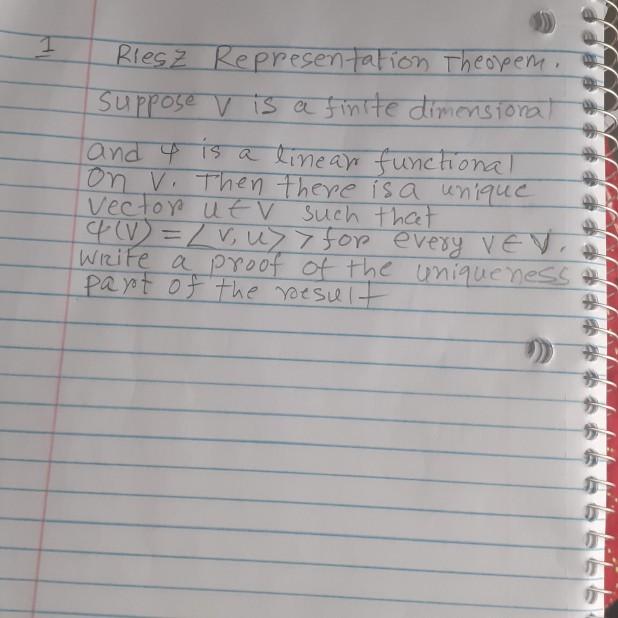 1 Riesz Representation Theorem.
Suppose V is a finite dimensional
and φ is a linear functional
On V. Then there is a unique
vector u ∈ V such that
φ(V) = <V, u> > for every V ∈ V.
write a proof of the uniqueness
part of the result